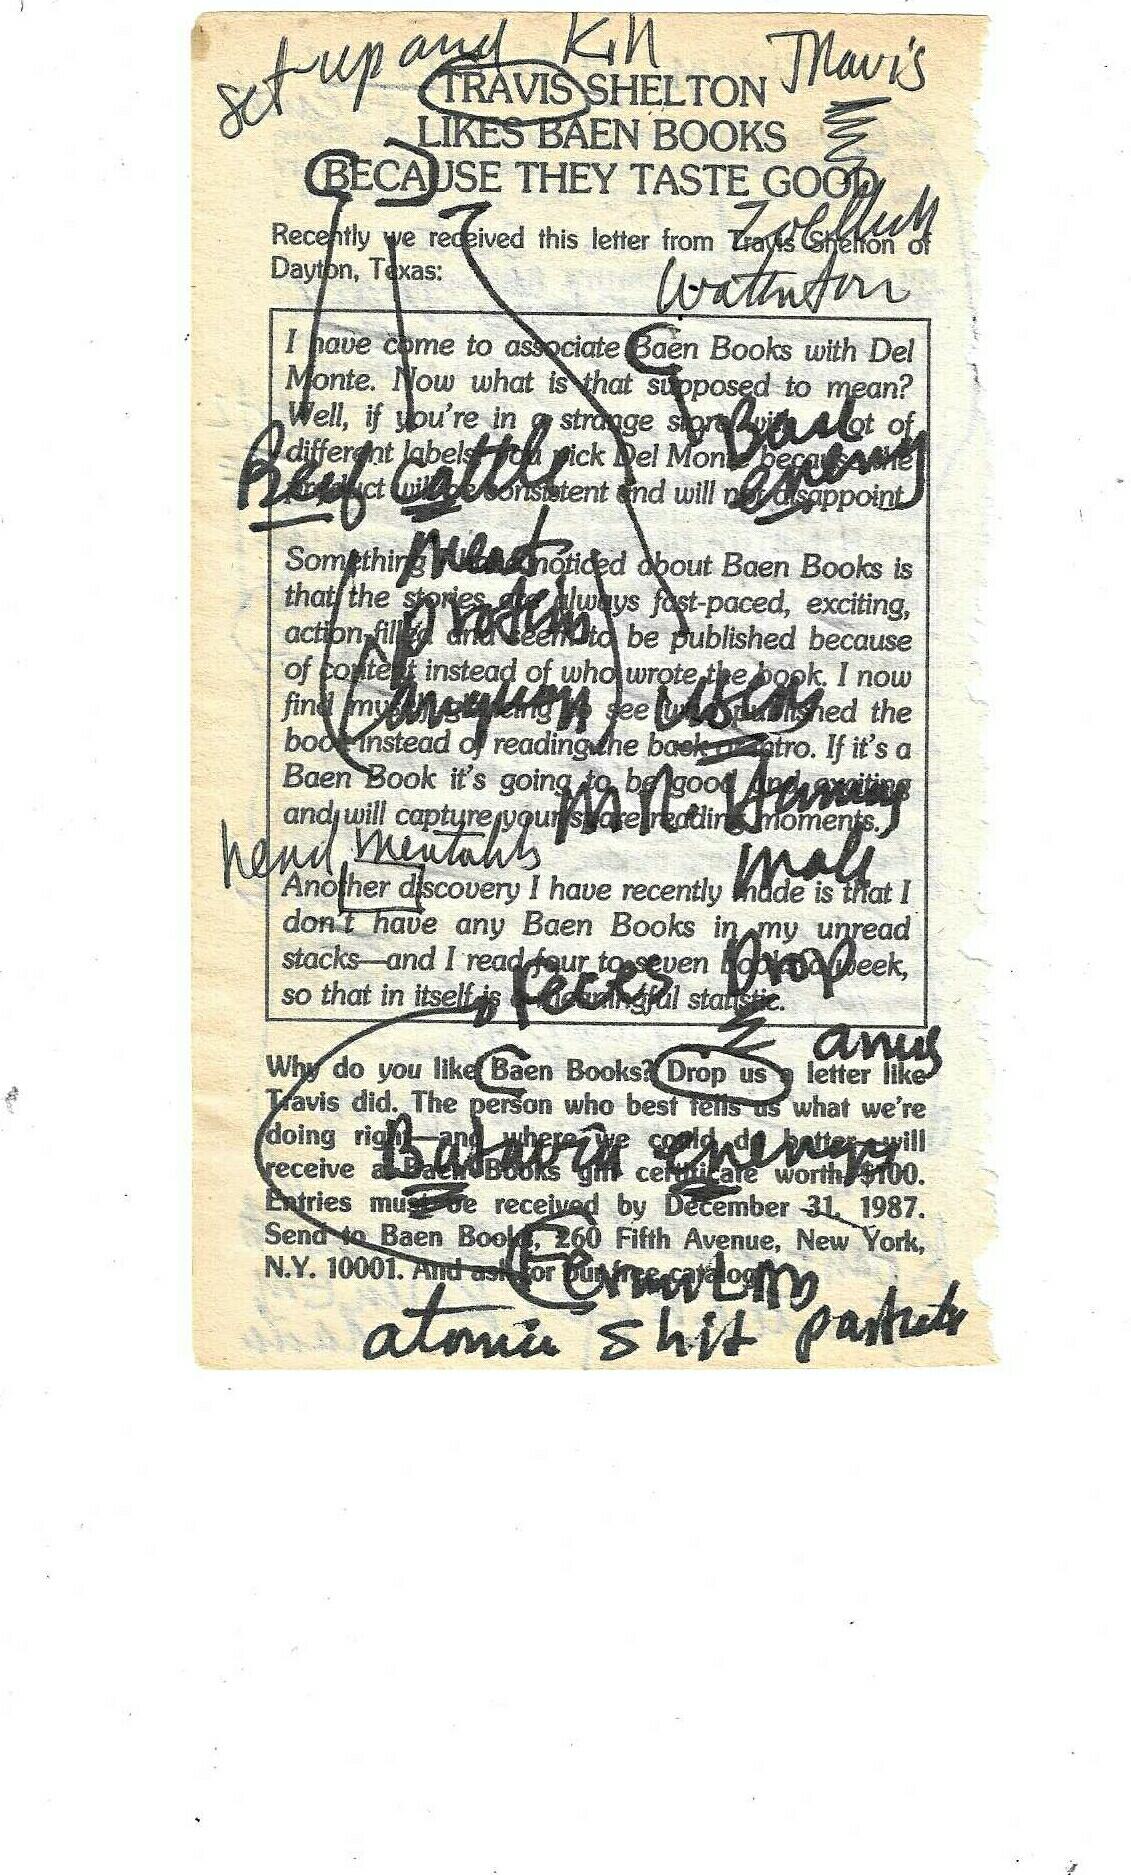 set up and Kill Travis
TRAVIS SHELTON
LIKES BAEN BOOKS
BECAUSE THEY TASTE GOOD
Recently we received this letter from Travis Shelton of
Dayton, Texas:
I have come to associate Baen Books with Del
Monte. Now what is that supposed to mean?
Well, if you're in a strange store with a lot of
different labels you pick Del Monte because the
product will be consistent and will not disappoint.
Beef cattle
energy
meat
Something I have noticed about Baen Books is
that the stories are always fast-paced, exciting,
action-filled and seem to be published because
of content instead of who wrote the book. I now
find myself glancing to see who published the
book instead of reading the back or intro. If it's a
Baen Book it's going to be good and exciting
and will capture your spare reading moments.
protein
users
male
head
Another discovery I have recently made is that I
don't have any Baen Books in my unread
stacks—and I read four to seven books a week,
so that in itself is a meaningful statistic.
feces Drop
anus
Why do you like Baen Books? Drop us a letter like
Travis did. The person who best tells us what we're
doing right—and where we could do better—will
receive a Baen Books gift certificate worth $100.
Entries must be received by December 31, 1987.
Send to Baen Books, 260 Fifth Avenue, New York,
N.Y. 10001. And ask for our free catalog.
Batavia energy
atomic shit